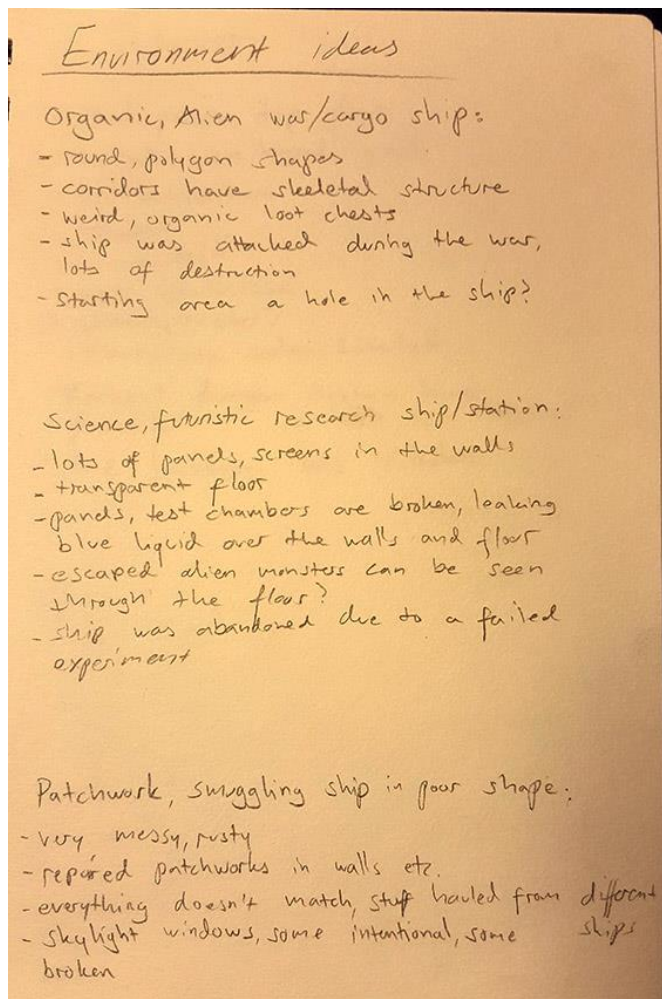 Environment ideas
Organic, Alien war/cargo ship:
- round, polygon shapes
- corridors have skeletal structure
- weird, organic loot chests
- ship was attacked during the war,
lots of destruction
- starting area a hole in the ship?
Science, futuristic research ship/station:
- lots of panels, screens in the walls
- transparent floor
- panels, test chambers are broken, leaking
blue liquid over the walls and floor
- escaped alien monsters can be seen
through the floor?
- ship was abandoned due to a failed
experiment
Patchwork, smuggling ship in poor shape:
- very messy, rusty
- repaired patchworks in walls etc.
- everything doesn't match, stuff hauled from different
ships
- skylight windows, some intentional, some
broken